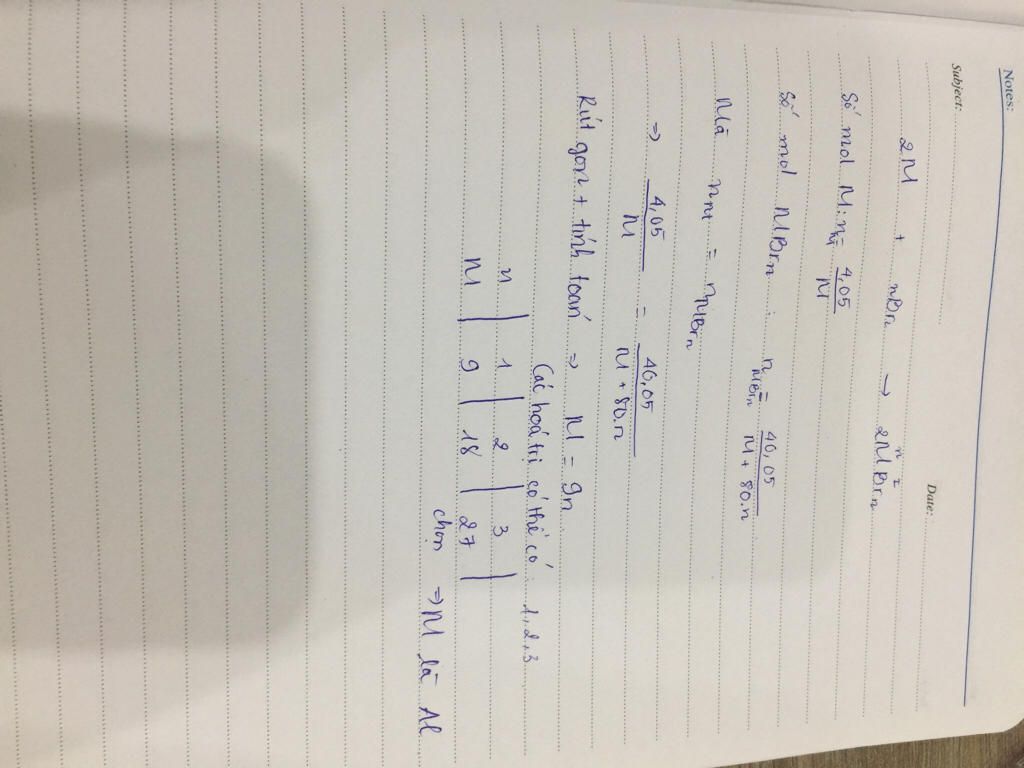 Notes:
Subject: Date:
2M + nBr₂ → 2MBrₙ
Số mol M: n_M = 4,05/M
Số mol MBrₙ : n_MBrₙ = 40,05/(M + 80.n)
Mà n_M = n_MBrₙ
⇒ 4,05/M = 40,05/(M + 80.n)
Rút gọn + tính toán ⇒ M = 9n
Các hoá trị có thể có : 1, 2, 3
n | 1 | 2 | 3 |
M | 9 | 18 | 27 |
chọn ⇒ M là Al